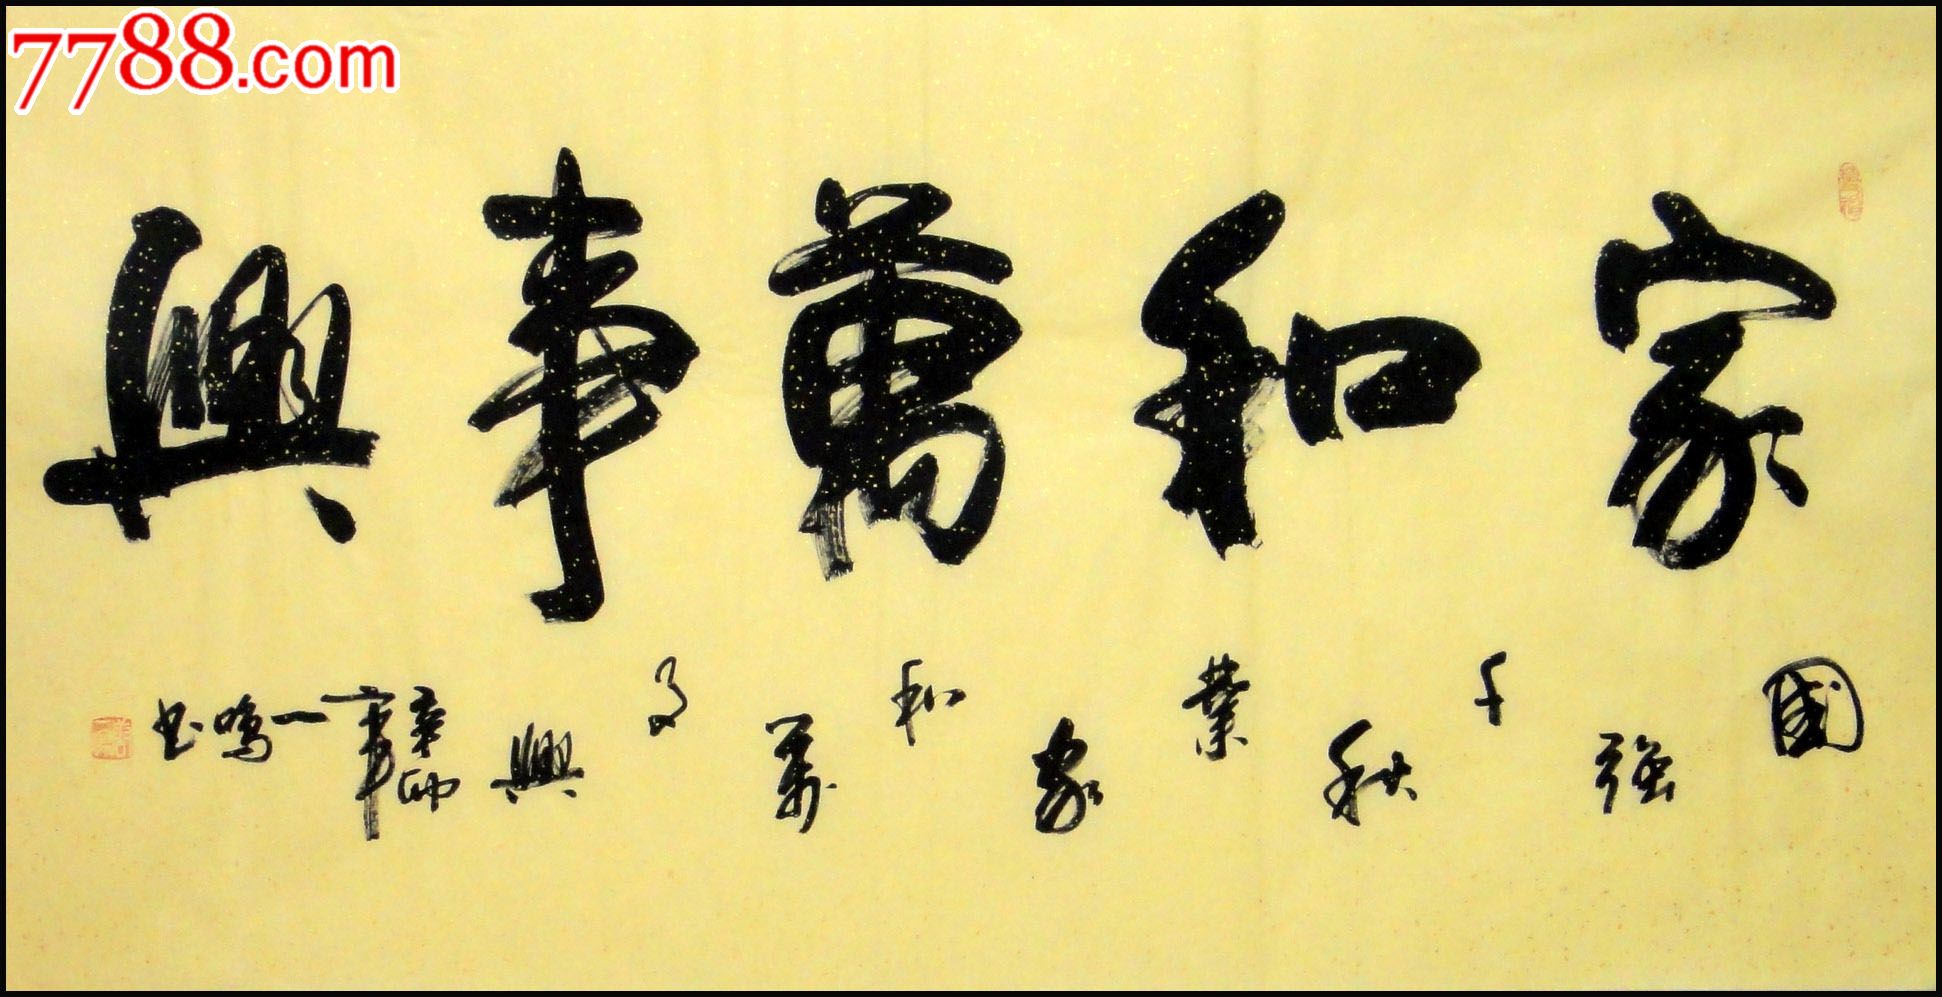 7788.com
家和萬事興
國強千秋業家和萬事興
辛卯年一鳴書